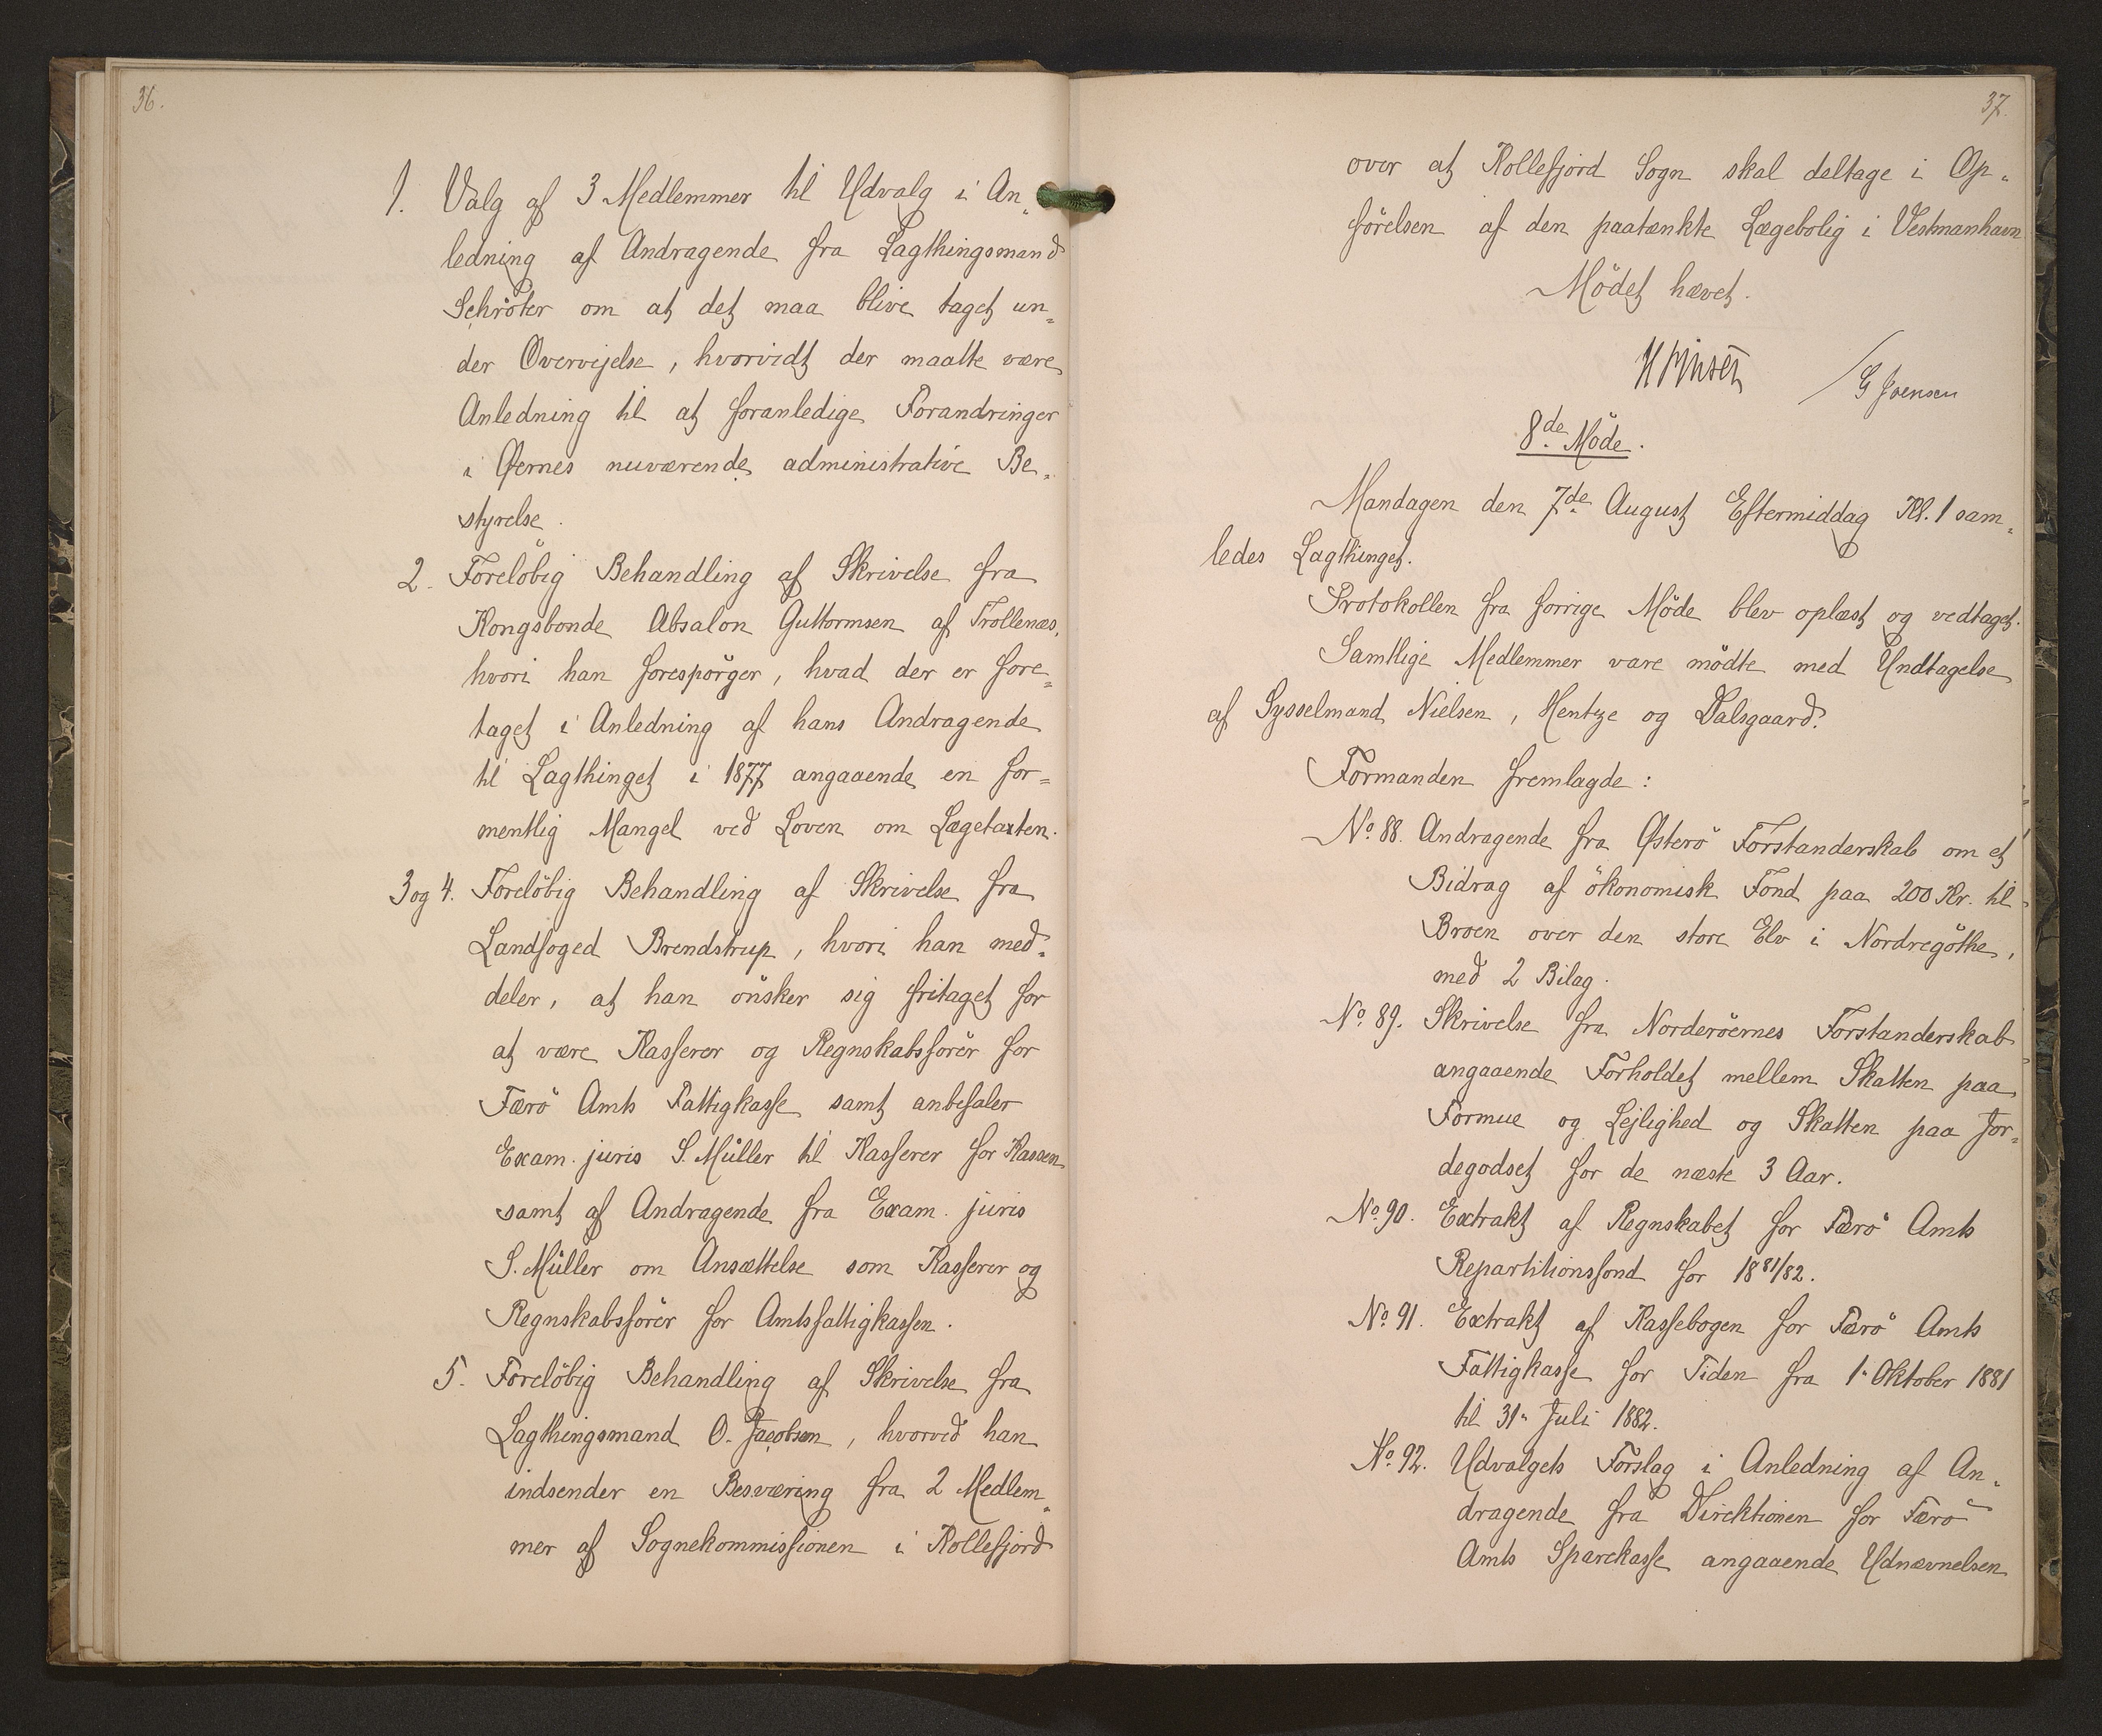 36.
1. Valg af 3 Medlemmer til Udvalg i An„
ledning af Andragende fra Lagthingsmand
Schröter om at det maa blive taget un„
der Overvejelse, hvorvidt der maatte være
Anledning til at foranledige Forandringer
i Øernes nuværende administrative Be„
styrelse.
2. Foreløbig Behandling af Skrivelse fra
Kongsbonde Absalon Guttormsen af Trollenæs,
hvori han forespörger, hvad der er fore„
taget i Anledning af hans Andragende
til Lagthinget i 1877 angaaende en for„
mentlig Mangel ved Loven om Lægetaxten.
3 og 4. Forelöbig Behandling af Skrivelse fra
Landfoged Brendstrup, hvori han med„
deler, at han önsker sig fritaget for
at være Kasserer og Regnskabsförer for
Færö Amts Fattigkasse samt anbefaler
Exam. juris S. Müller til Kasserer for Kassen
samt af Andragende fra Exam. juris
S. Müller om Ansættelse som Kasserer og
Regnskabsförer for Amtsfattigkassen.
5. Forelöbig Behandling af Skrivelse fra
Lagthingsmand O. Jacobsen, hvorved han
indsender en Besværing fra 2 Medlem„
mer af Sognekommissionen i Kollefjord
37.
over at Kollefjord Sogn skal deltage i Op„
förelsen af den paatænkte Lægebolig i Vestmanhavn
Mödet hævet.
G Joensen
8de Möde.
Mandagen den 7de August Eftermiddag Kl. 1 sam„
ledes Lagthinget.
Protokollen fra forrige Möde blev oplæst og vedtaget.
Samtlige Medlemmer vare mödte med Undtagelse
af Sysselmand Nielsen, Hentze og Dalsgaard.
Formanden fremlagde:
No. 88. Andragende fra Österö Forstanderskab om et
Bidrag af ökonomisk Fond paa 200 Kr. til
Broen over den store Elv i Nordregöthe,
med 2 Bilag.
No. 89. Skrivelse fra Norderöernes Forstanderskab
angaaende Forholdet mellem Skatten paa
Formue og Lejlighed og Skatten paa Jor„
degodset for de næste 3 Aar.
No. 90. Extrakt af Regnskabet for Færö Amts
Repartitionsfond for 1881/82.
No. 91. Extrakt af Kassebogen for Færö Amts
Fattigkasse for Tiden fra 1. Oktober 1881
til 31. Juli 1882.
No. 92. Udvalgets Forslag i Anledning af An„
dragende fra Direktionen for Færö
Amts Sparekasse angaaende Udnævnelsen